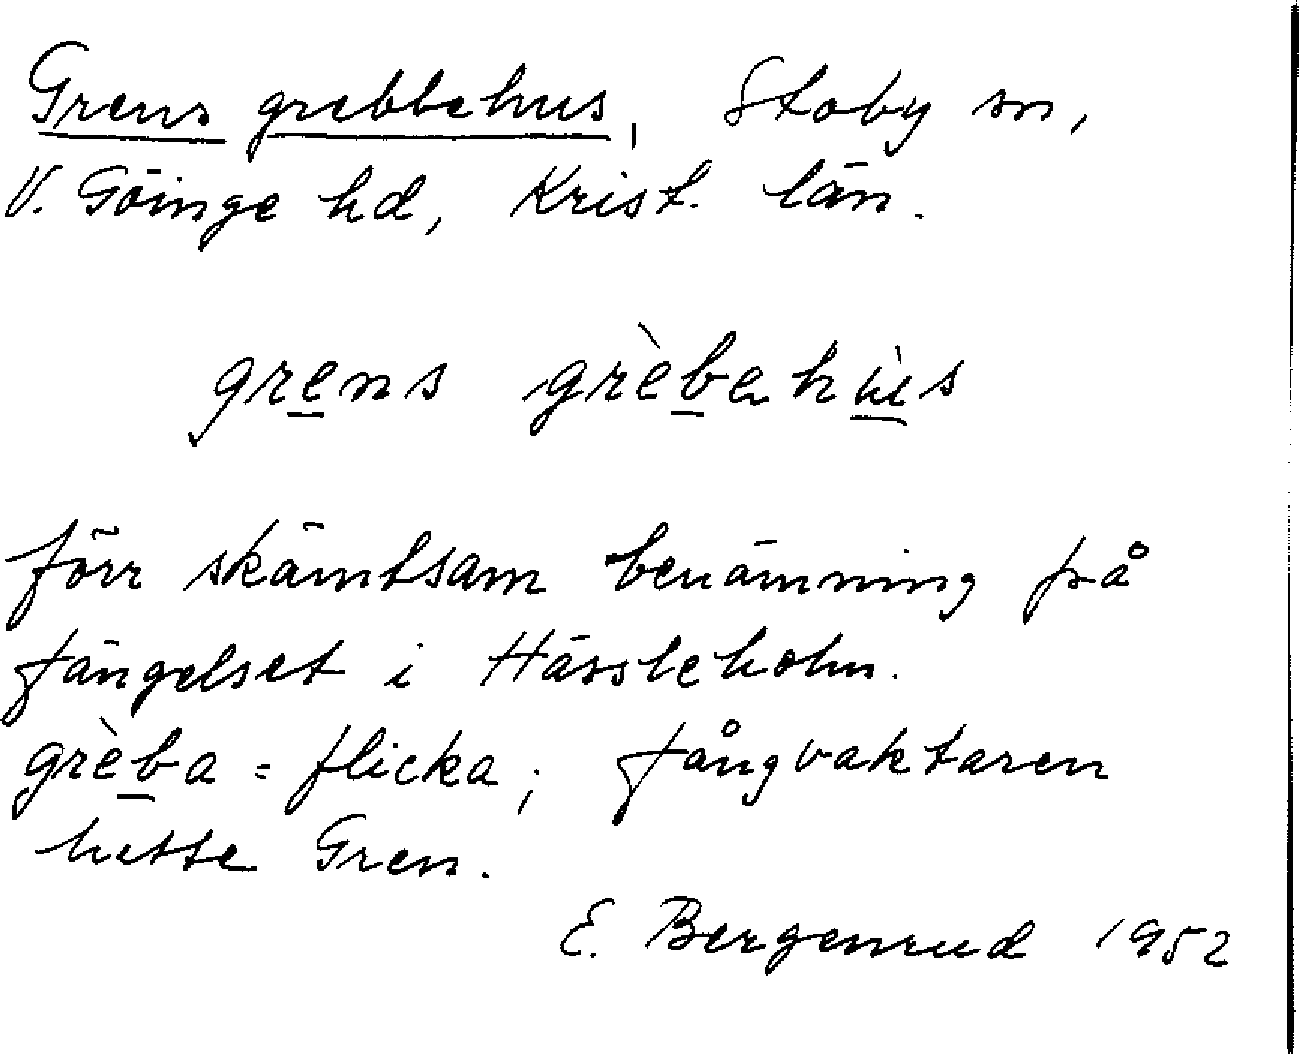 Grens grebbehus, Stoby sn,
V. Göinge hd, Krist. län.
grens grèbehùs
förr skämtsam benämning på
fängelset i Hässleholm.
grèba = flicka; fångvaktaren
hette Gren.
E. Bergenrud 1952